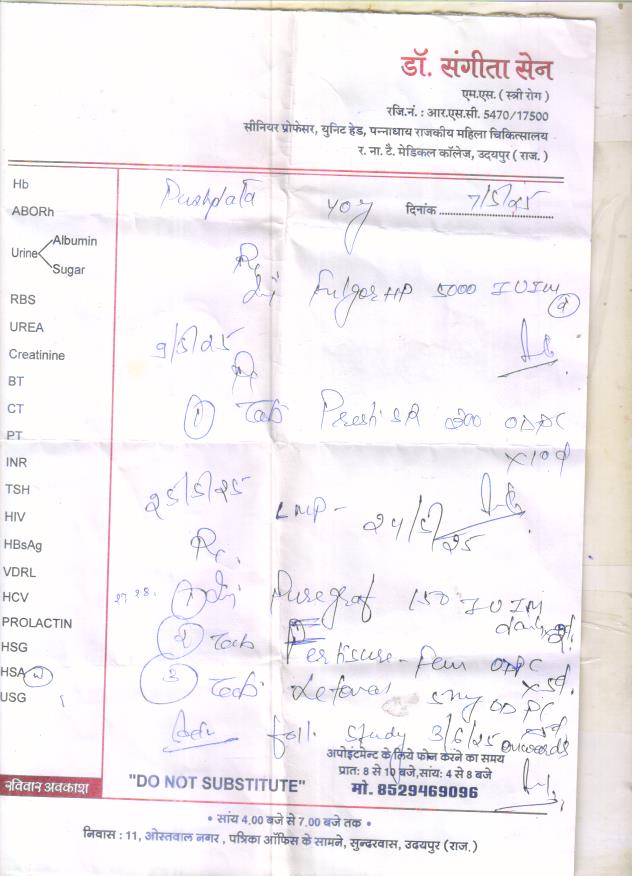 डॉ. संगीता सेन
एम.एस. ( स्त्री रोग )
रजि.नं. : आर.एस.सी. 5470/17500
सीनियर प्रोफेसर, यूनिट हेड, पन्नाधाय राजकीय महिला चिकित्सालय
र. ना. टै. मेडिकल कॉलेज, उदयपुर ( राज. )
Pushplata 40y दिनांक 7/5/25
Hb
ABORh
Urine Albumin
Sugar
RBS
UREA
Creatinine
BT
CT
PT
INR
TSH
HIV
HBsAg
VDRL
HCV
PROLACTIN
HSG
HSA
USG
Rx
Inj Fulgor HP 5000 IU IM
9/5/25
Rx
① Tab 200 OD PC
x 10 d
25/5/25 LMP - 24/5/25
Rx.
27 28. ① Inj Puregraf 150 IU IM
daily
② Tab Fertisure-Fem OD PC
x 5d.
③ Tab. 5mg OD PC
x 5d
Adv foll. study 3/6/25 onwards
अपोइटमेन्ट के लिये फोन करने का समय
प्रात: 8 से 10 बजे,सांय: 4 से 8 बजे
रविवार अवकाश "DO NOT SUBSTITUTE" मो. 8529469096
• सांय 4.00 बजे से 7.00 बजे तक •
निवास : 11, ओस्तवाल नगर , पत्रिका ऑफिस के सामने, सुन्दरवास, उदयपुर (राज.)